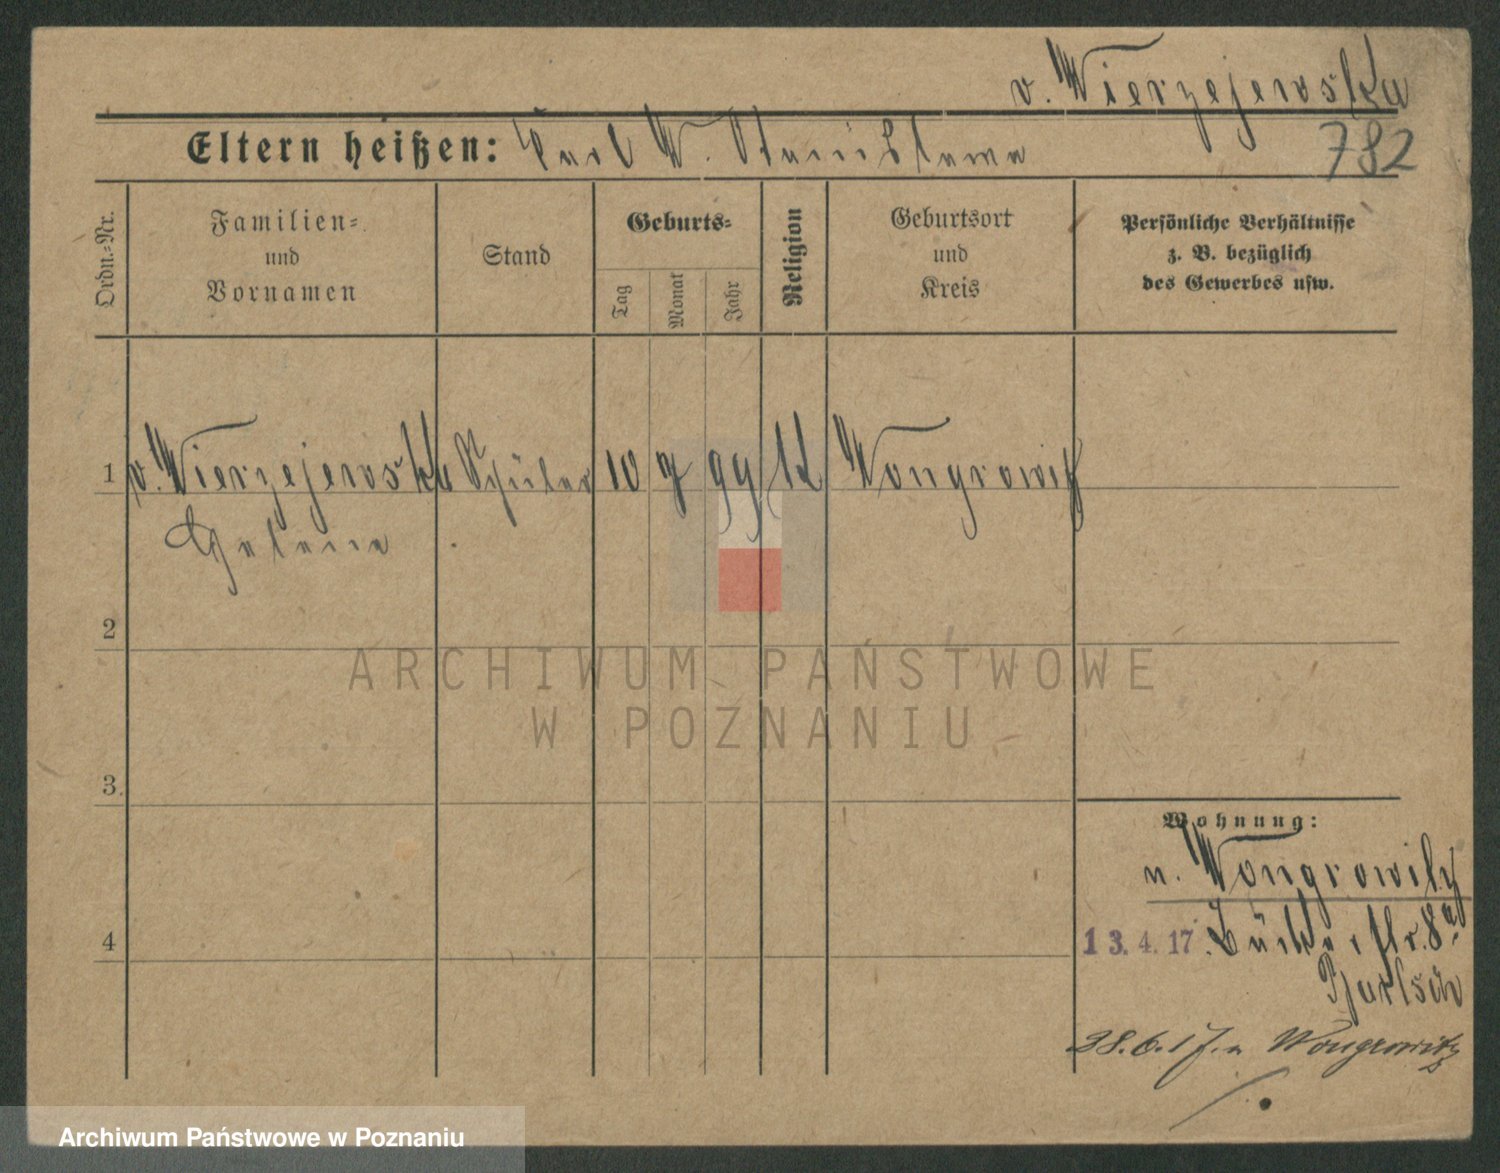 v. Wierzejewska
782
Eltern heißen: Karl W. Stanislawa
Ordn.-Nr.
Familien- und Vornamen
Stand
Geburts-
Tag
Monat
Jahr
Religion
Geburtsort und Kreis
Persönliche Verhältnisse
z. B. bezüglich
des Gewerbes usw.
1 v. Wierzejewska Schüler 10 7 99 K Wongrowitz
Helene
2
ARCHIWUM PAŃSTWOWE
W POZNANIU
3.
Wohnung:
n. Wongrowitz
4
13.4.17. Bückerstr. 8a.
28.6.17. n Wongrowitz
Archiwum Państwowe w Poznaniu